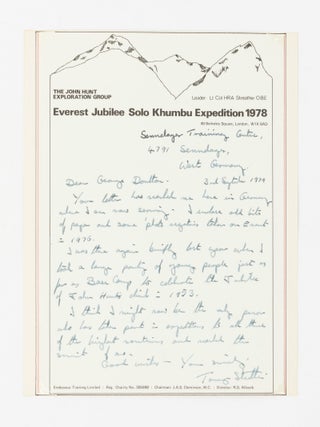 THE JOHN HUNT
EXPLORATION GROUP
Leader: Lt Col HRA Streather OBE
Everest Jubilee Solo Khumbu Expedition 1978
Sennelager Training Centre,
4791 Sennelager,
West Germany
Dear George Doulton. 2nd Septbr 1979
Your letter has reached me here in Germany
where I am now serving. I enclose odd bits
of paper and some 'photo' negatives taken on Everest
in 1976.
I was there again briefly last year when I
took a large party of young people just as
far as Base Camp to celebrate the Jubilee
of John Hunt's climb in 1953.
I think I might now be the only person
who has taken part in expeditions to all three
of the highest mountains and reached the
summit of one.
Good wishes - Yours sincerely,
Tony Streather
Endeavour Training Limited Reg. Charity No. Chairman: Director: